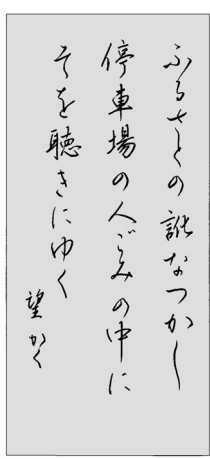 ふるさとの訛なつかし
停車場の人ごみの中に
そを聴きにゆく
望かく